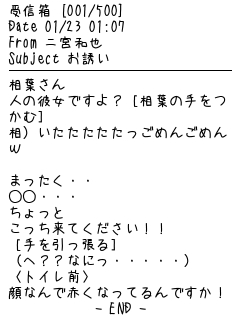 受信箱 [001/500]
Date 01/23 01:07
From 二宮和也
Subject お誘い
相葉さん
人の彼女ですよ？[相葉の手をつ
かむ]
相）いたたたたたっごめんごめん
w
まったく・・
○○・・・
ちょっと
こっち来てください！！
[手を引っ張る]
（へ？？なにっ・・・・・）
〈トイレ前〉
顔なんで赤くなってるんですか！
- END -